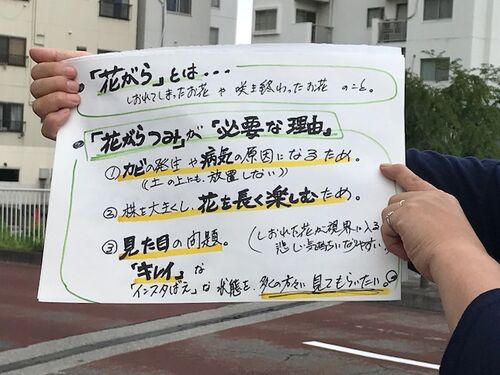 。「花がら」とは・・・
しおれてしまったお花 や 咲き終わったお花 のこと。
「花がらつみ」が「必要な理由」
①カビの発生や病気の原因になるため。
(土の上にも、放置しない)
②株を大きくし、花を長く楽しむため。
③見た目の問題。
(しおれた花が視界に入ると
悲しい気持ちになりやすい)
「キレイ」な
「インスタばえ」な状態を、多くの方々に見てもらいたい。